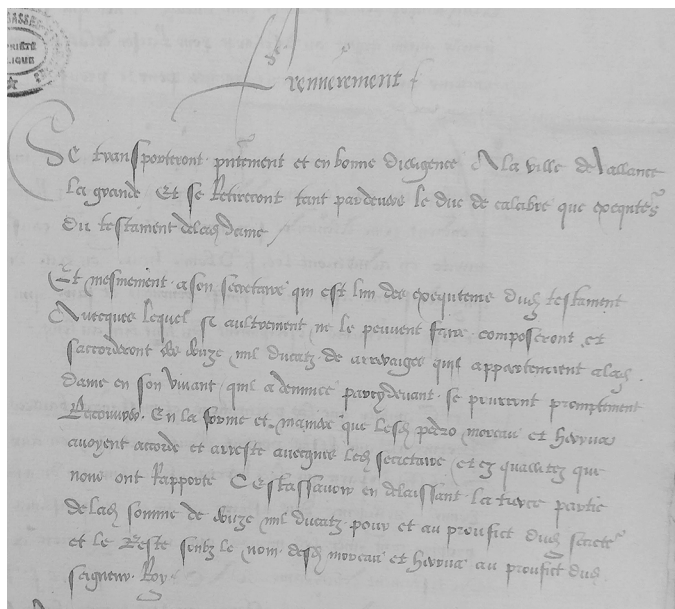 Premierement
Se transporteront pñtement et en bonne dilligence A la ville de Vallance
la grande Et se Retireront tant pardevers le duc de calabre que exequteŝ
du testament delad dame
Et mesmement a son secretaire qui est lun des exequteurs dud testament
Avecques lequel se aultrement ne le peuvent faire composeront et
saccorderont des douze mil ducatz de arreraiges quil appartenoient a lad
dame en son vivant quil a denunce par cy devant se pouvoir promptement
Recouvrer En la forme et maniere que lesd pedro moreau et
avoyent accorde et arreste avecques led secretaire et en quallitez que
nous ont Rapporte Cestassavoir en delaissant la tierce partie
de lad somme de douze mil ducatz pour et au prouffict dud secrete
et le Reste soubz le nom desd moreau et au prouffict dud
seigneur Roy